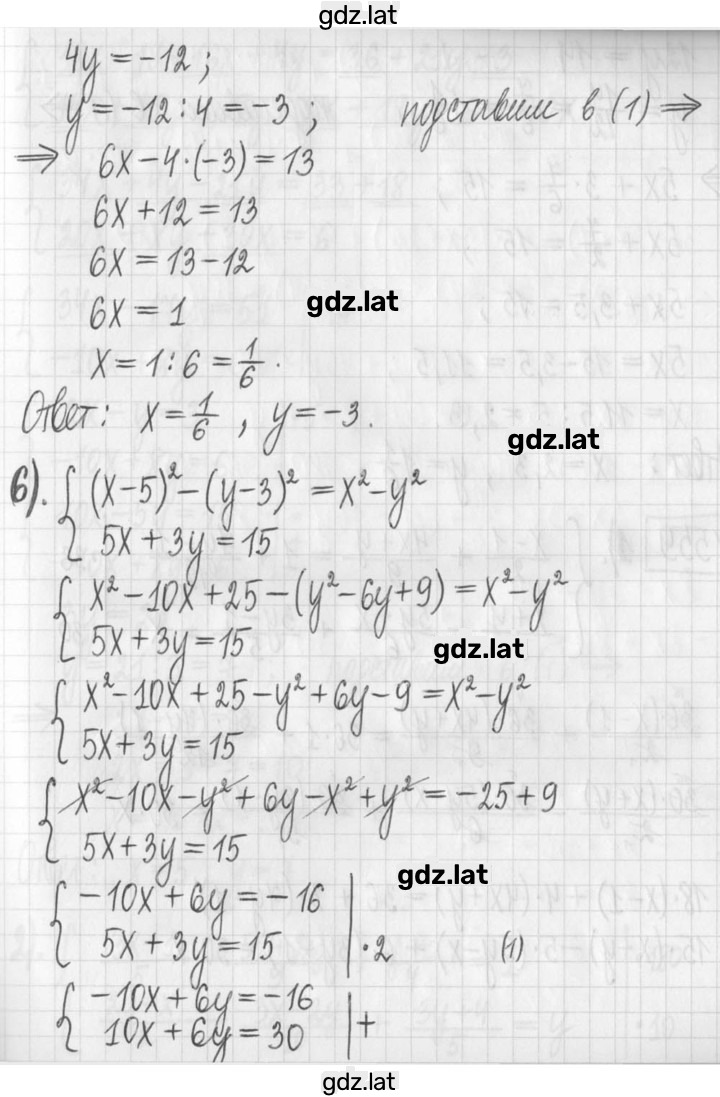 gdz.lat
4y = -12 ;
y = -12 : 4 = -3 ; подставим в (1) ⇒
⇒ 6x - 4·(-3) = 13
6x + 12 = 13
6x = 13 - 12
6x = 1
gdz.lat
x = 1 : 6 = 1/6 .
Ответ: x = 1/6 , y = -3 .
gdz.lat
6). { (x-5)² - (y-3)² = x² - y²
5x + 3y = 15
{ x² - 10x + 25 - (y² - 6y + 9) = x² - y²
5x + 3y = 15
gdz.lat
{ x² - 10x + 25 - y² + 6y - 9 = x² - y²
5x + 3y = 15
{ x² - 10x - y² + 6y - x² + y² = -25 + 9
5x + 3y = 15
gdz.lat
{ -10x + 6y = -16 |
5x + 3y = 15 | ·2 (1)
{ -10x + 6y = -16 |
10x + 6y = 30 | +
gdz.lat